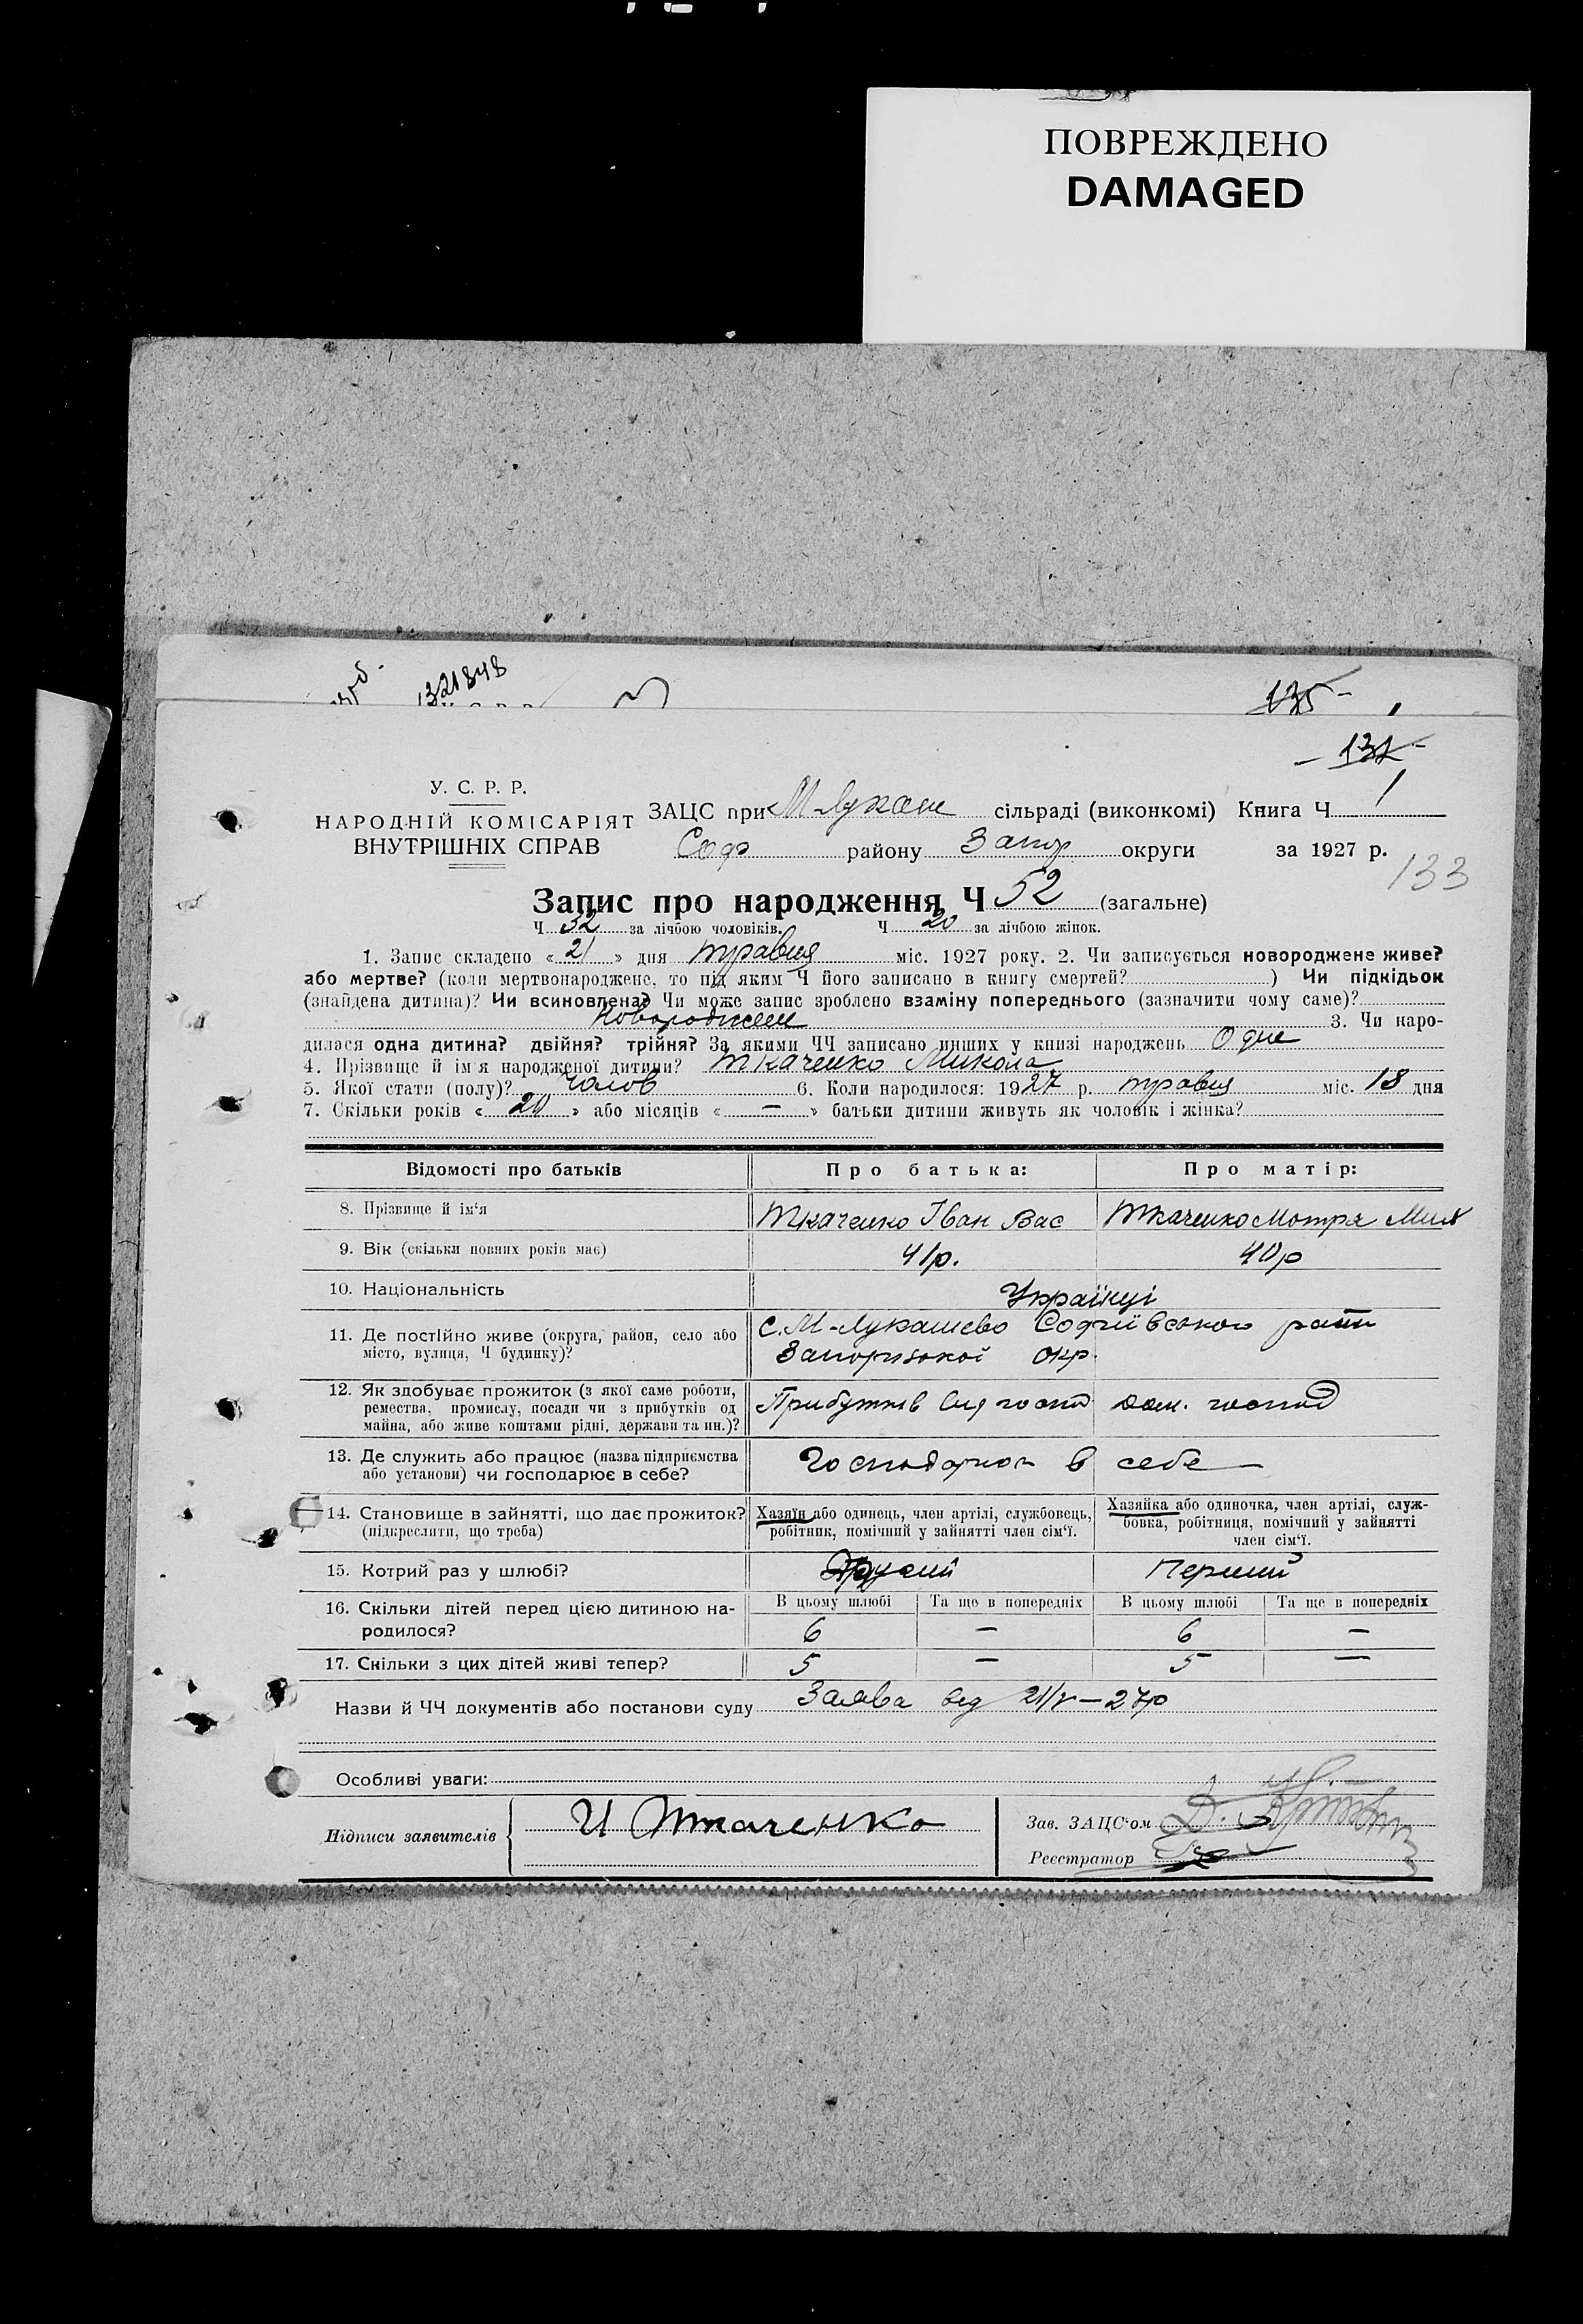 ПОВРЕЖДЕНО
DAMAGED
1321848
135-
- 132 -
У. С. Р. Р.
НАРОДНІЙ КОМІСАРІЯТ
ВНУТРІШНІХ СПРАВ
ЗАЦС при М-Лукаш сільраді (виконкомі) Книга Ч 1
Соф району Запор округи за 1927 р.
133
Запис про народження Ч 52 (загальне)
Ч 32 за лічбою чоловіків. Ч 20 за лічбою жінок.
1. Запис складено « 21 » дня травня міс. 1927 року. 2. Чи записується новороджене живе?
або мертве? (коли мертвонароджене, то під яким Ч його записано в книгу смертей? ) Чи підкідьок
(знайдена дитина)? Чи всиновлена? Чи може запис зроблено взаміну попереднього (зазначити чому саме)?
Новороджене 3. Чи наро-
дилася одна дитина? двійня? трійня? За якими ЧЧ записано инших у книзі народжень Одне
4. Прізвище й ім'я народженої дитини? Ткаченко Микола
5. Якої стати (полу)? Чолов 6. Коли народилося: 1927 р. травня міс. 18 дня
7. Скільки років « 20 » або місяців « — » батьки дитини живуть як чоловік і жінка?
Відомості про батьків Про батька: Про матір:
8. Прізвище й ім'я Ткаченко Іван Вас Ткаченко Мотря Мих
9. Вік (скільки повних років має) 41р. 40р
10. Національність Українці
11. Де постійно живе (округа, район, село або С. М-Лукашево Софіївського райн
місто, вулиця, Ч будинку)? Запорізької окр.
12. Як здобуває прожиток (з якої саме роботи,
ремества, промислу, посади чи з прибутків од Прибутків від госпд дом. господ
майна, або живе коштами рідні, держави та ин.)?
13. Де служить або працює (назва підприємства Господарюють в себе —
або установи) чи господарює в себе?
14. Становище в зайнятті, що дає прожиток? Хазяїн або одинець, член артілі, службовець, Хазяйка або одиночка, член артілі, служ-
(підкреслити, що треба) робітник, помічний у зайнятті член сім'ї. бовка, робітниця, помічний у зайнятті
член сім'ї.
15. Котрий раз у шлюбі? Перший
16. Скільки дітей перед цією дитиною на- В цьому шлюбі Та ще в попередніх В цьому шлюбі Та ще в попередніх
родилося? 6 — 6 —
17. Скільки з цих дітей живі тепер? 5 — 5 —
Назви й ЧЧ документів або постанови суду Заява від 21/V—27р
Особливі уваги:
Підписи заявителів И Ткаченко
Зав. ЗАЦС'ом
Реєстратор